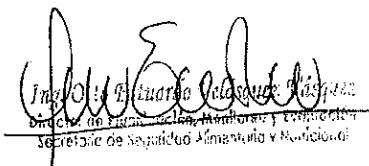 Ing. Otto Estuardo Velásquez Vásquez
Director de Planificación, Monitoreo y Evaluación
Secretaría de Seguridad Alimentaria y Nutricional